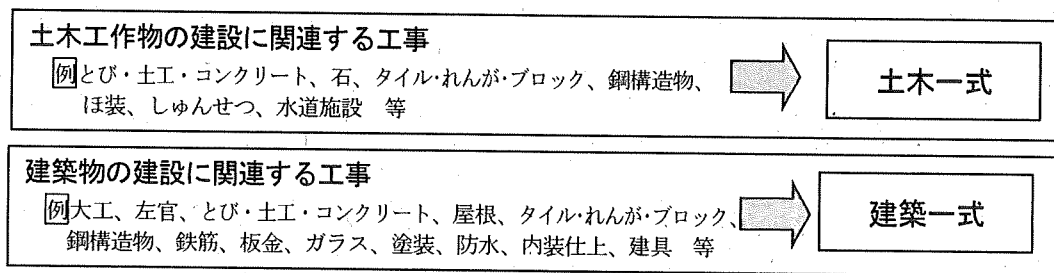 土木工作物の建設に関連する工事
例とび・土工・コンクリート、石、タイル・れんが・ブロック、鋼構造物、
ほ装、しゅんせつ、水道施設　等
土木一式
建築物の建設に関連する工事
例大工、左官、とび・土工・コンクリート、屋根、タイル・れんが・ブロック、
鋼構造物、鉄筋、板金、ガラス、塗装、防水、内装仕上、建具　等
建築一式